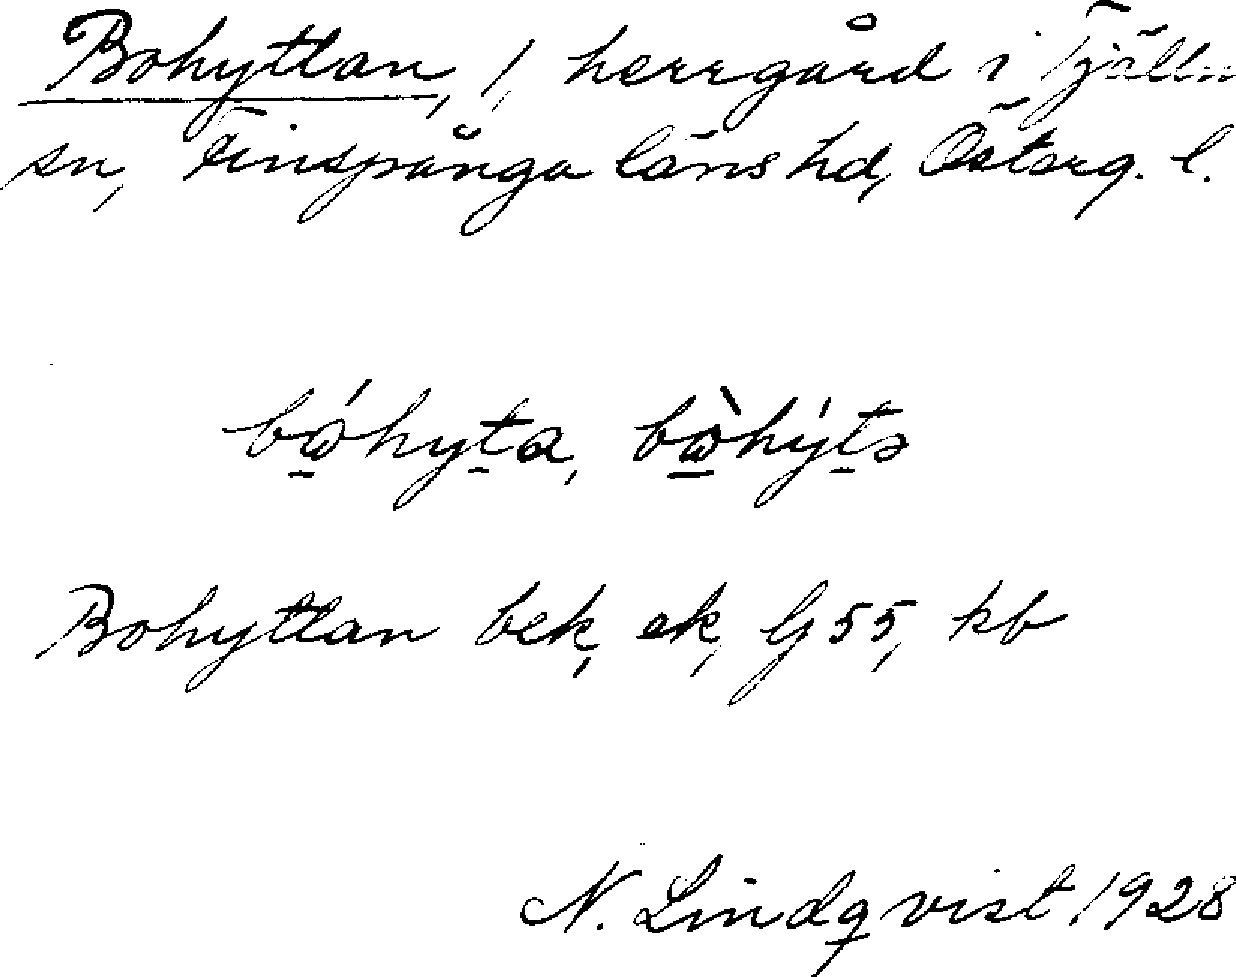 Bohyttan, 1, herrgård i Tjälln
sn, Finspånga läns hd, Österg. l.
bohyta, bohyta
Bohyttan bek, ek, G 55, kb
N. Lindqvist 1928